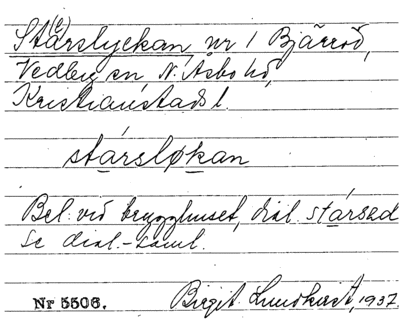 Sta(e)rslyckan, nr 1 Bjärröd,
Vedby sn N. Åsbo hd,
Kristianstads l.
stársløkan
Bel. vid brygghuset, dial. stársad
Se dial.-saml.
Nr 5506. Birgit Lundkvist, 1937